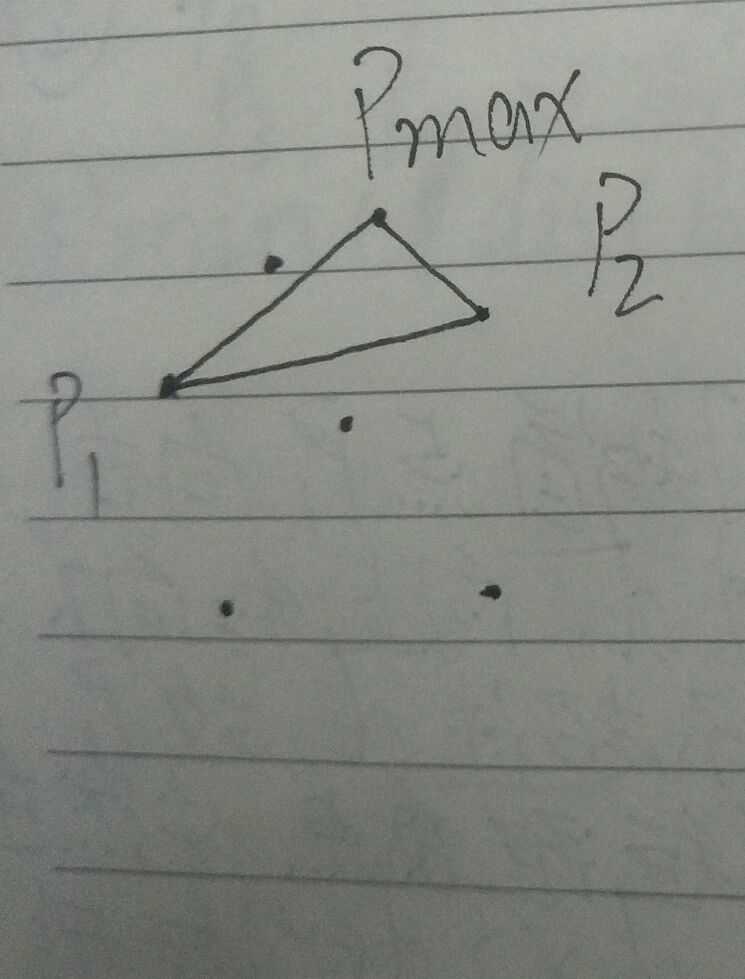 Pmax
P2
P1